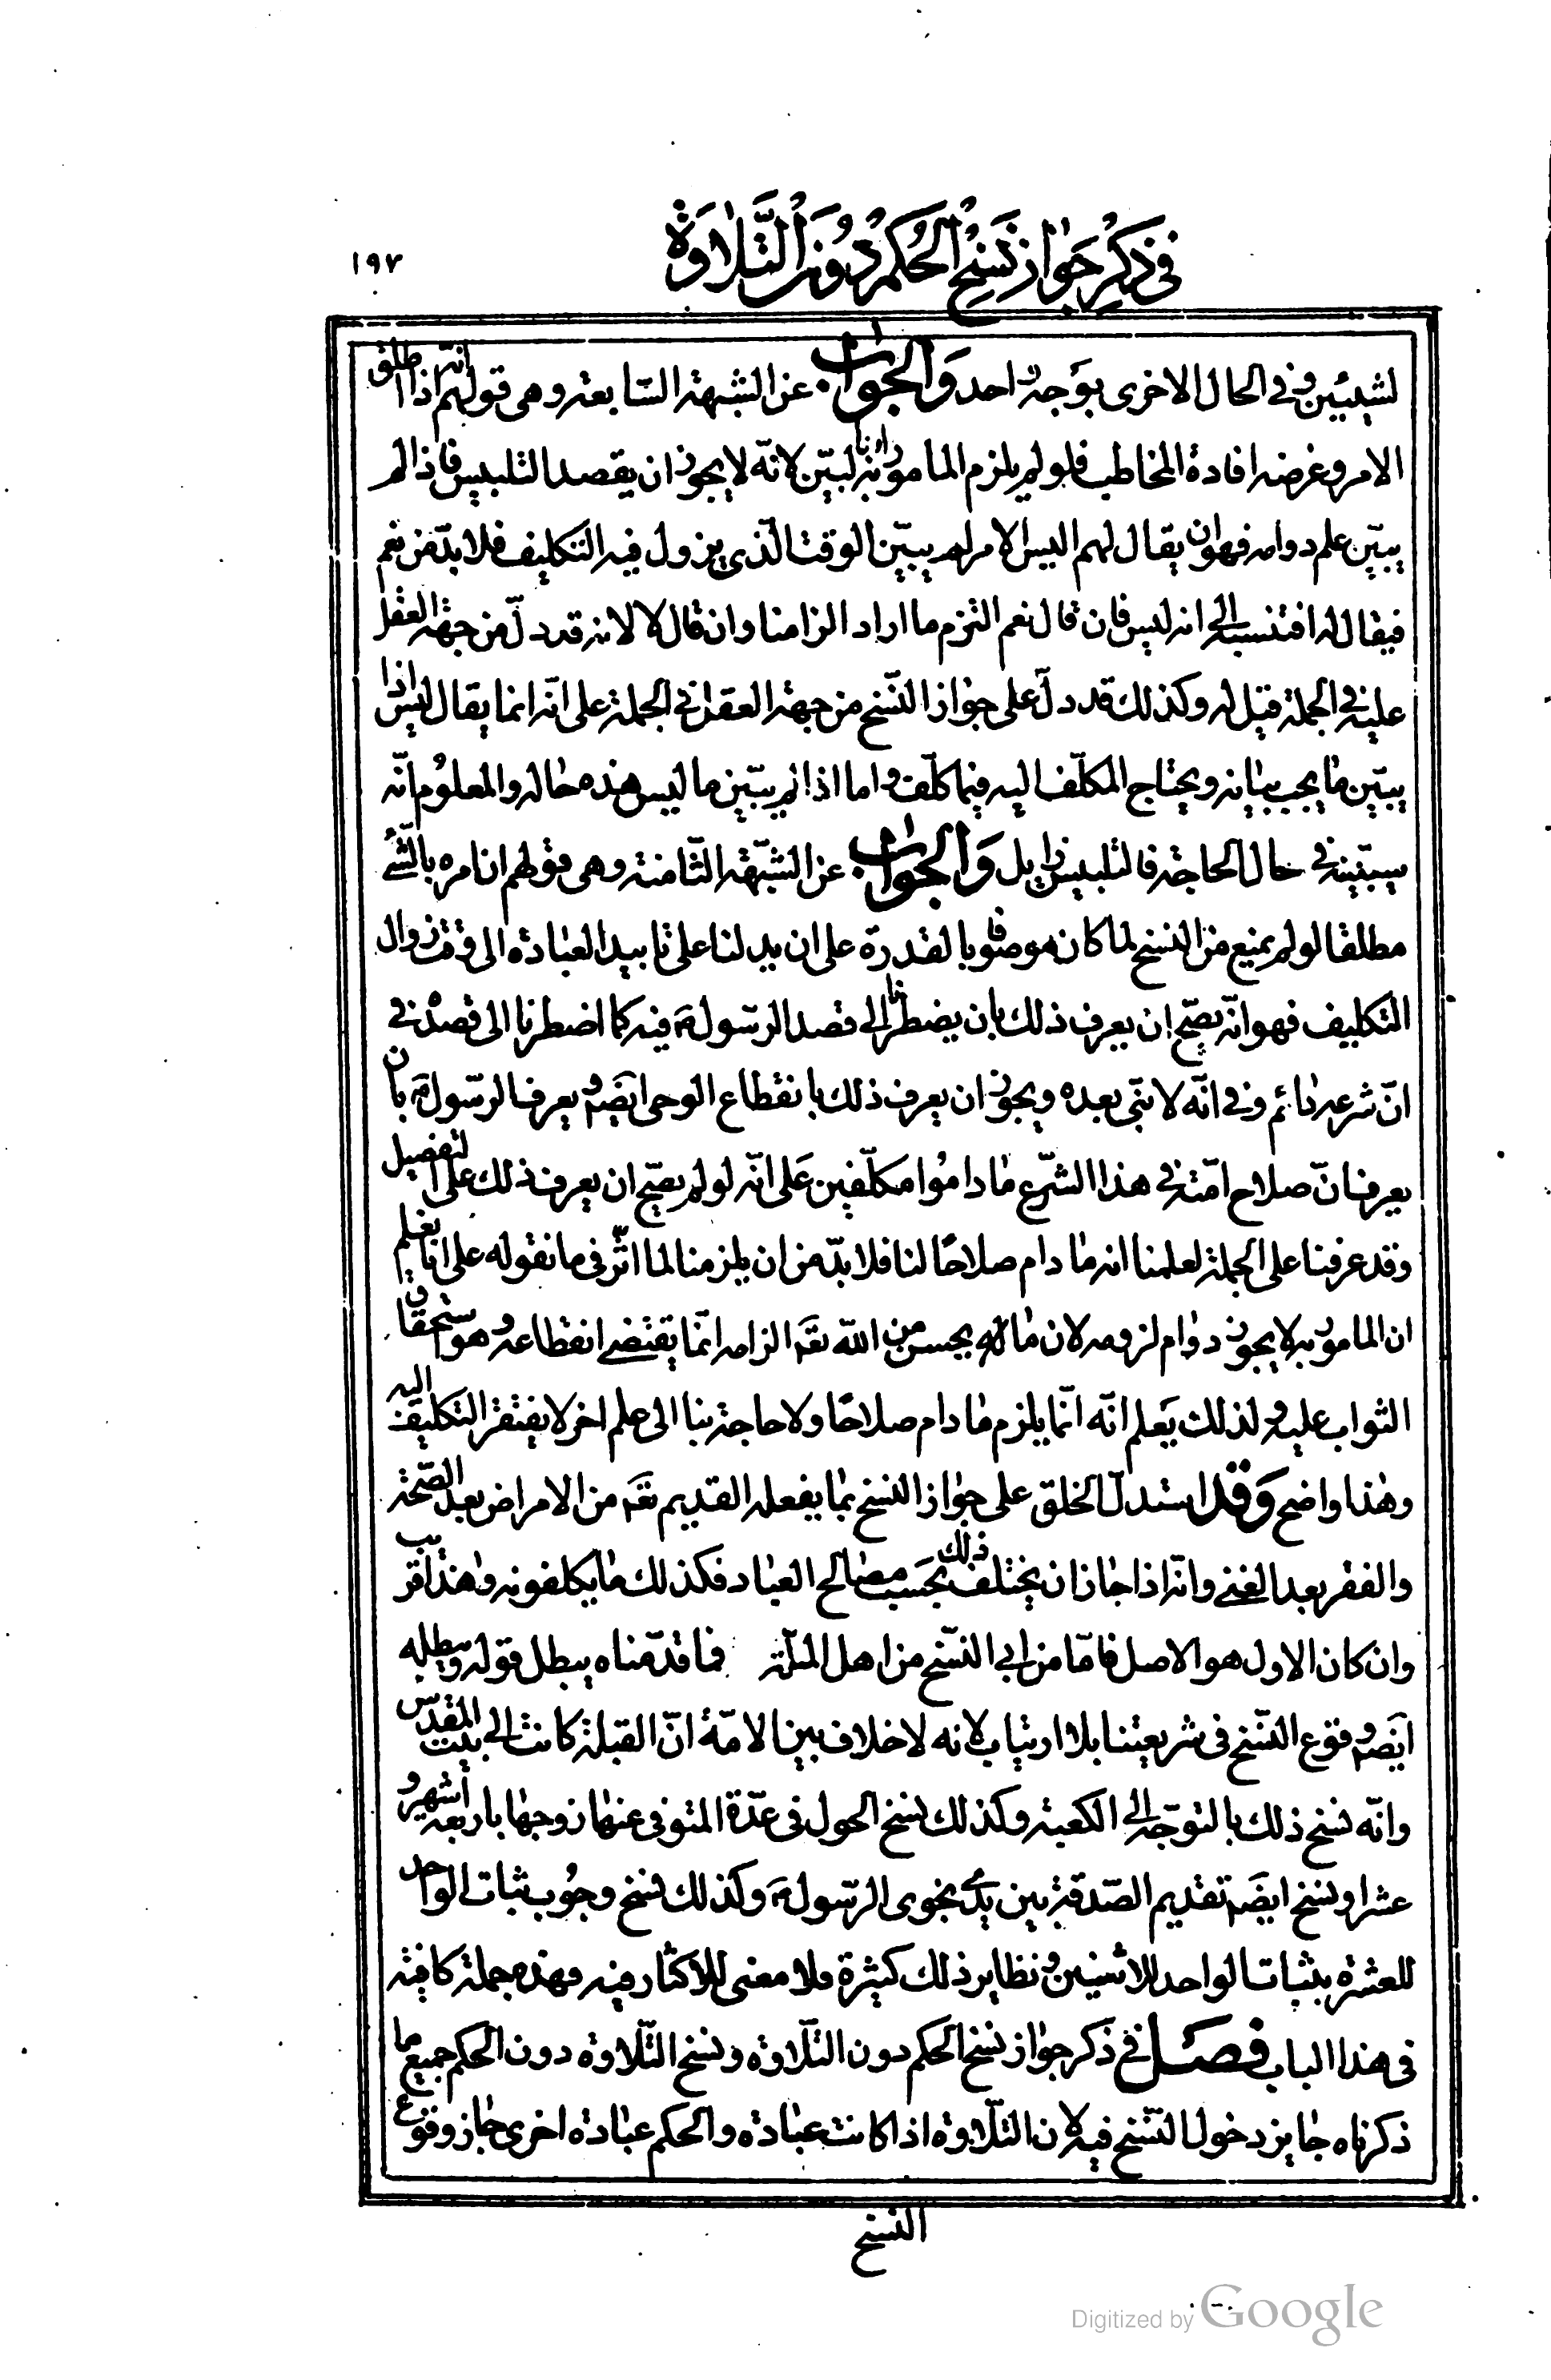 في ذكر جواز نسخ الحكم دون التلاوة
١٩٧
لشيئين وفي الحال الاخرى بوجه واحد والجواب عن الشبهة السابعة وهي قولهم انه اذا اطلق
الامر وغرضه افادة المخاطب فلو لم يلزم المامور به ابدا لبيّن لانّه لا يجوز ان يقصد التلبيس فاذا لم
يبيّن علم دوامه فهو ان يقال لهم اليس الامر لم يبيّن الوقت الّذي يزول فيه التكليف فلا بدّ من نعم
فيقال له افتنسب الى انه لبس فان قال نعم التزم ما اراد الزامنا وان قال لا لانه قد دلّ من جهة العقل
عليه في الجملة قيل له وكذلك قد دلّ على جواز النّسخ من جهة العقل في الجملة على انّه انما يقال لبس اذا
يبيّن ما يجب بيانه ويحتاج المكلّف اليه فيما كلّف واما اذا لم يبيّن ما ليس هذه حاله والمعلوم انّه
سيبيّنه في حال الحاجة فالتلبيس زايل والجواب عن الشبّهة الثّامنة وهي قولهم ان امره بالشّئ
مطلقا لو لم يمنع من النسخ لما كان موصوفا بالقدرة على ان يدلنا على تابيد العبادة الى وقت زوال
التكليف فهو انّه يصّح ان يعرف ذلك بان يضطرّنا الى قصد الرّسول ص فيه كما اضطرنا الى قصده في
انّ شرعه دائم وفي انّه لا نبّي بعده ويجوز ان يعرف ذلك بانقطاع الوحي ايضَم ويعرف الرّسول ص بان
يعرف انّ صلاح امّته في هذا الشّرع ما داموا مكلّفين على انّه لو لم يصّح ان يعرف ذلك على التفصيل
وقد عرفنا على الجملة لعلمنا انه ما دام صلاحًا لنا فلا بدّ من ان يلزمنا لما اثّر في ما نقوله على انا نعلم
ان المامور به لا يجوز دوام لزومه لان ما له يحسن من الله تعَم الزامه انّما يقتضي انقطاعه وهو استحقاق
الثواب عليه ولذلك يعلم انّه انّما يلزم ما دام صلاحًا ولا حاجة بنا الى علم اخر لا يفتقر التكليف اليه
وهذا واضح وقد استدلّ الخلق على جواز النسخ بما يفعله القديم تعَم من الامراض بعد الصّحة
والفقر بعد الغني وانّه اذا جاز ان يختلف ذلك بحَسب مصالح العباد فكذلك ما يكلفونه وهذا قريب
وان كان الاول هو الاصل فامّا من ابى النّسخ من اهل الملّة فما قدّمناه يبطل قوله ويبطله
ايضَم وقوع النّسخ في شريعتنا بلا ارتياب لانه لا خلاف بين الامّة انّ القبلة كانت الى بيت المقدّس
وانّه نسخ ذلك بالتوجّه الى الكعبة وكذلك نسخ الحول في عدّة المتوفى عنها زوجها باربعة اشهر و
عشرا ونسخ ايضَم تقديم الصّدقة بين يدي نجوى الرّسول ص وكذلك نسخ وجوب ثبات الواحد
للعشرة بثبات الواحد للاثنين ونظاير ذلك كثيرة ولا معنى للاكثار فيه وهذه جملة كافية
في هذا الباب فصل في ذكر جواز نسخ الحكم دون التّلاوة ونسخ التّلاوة دون الحكم جميع ما
ذكرناه جايز دخول النّسخ فيه لان التّلاوة اذا كانت عبادة والحكم عبادة اخرى جاز وقوع
النسخ
Digitized by Google